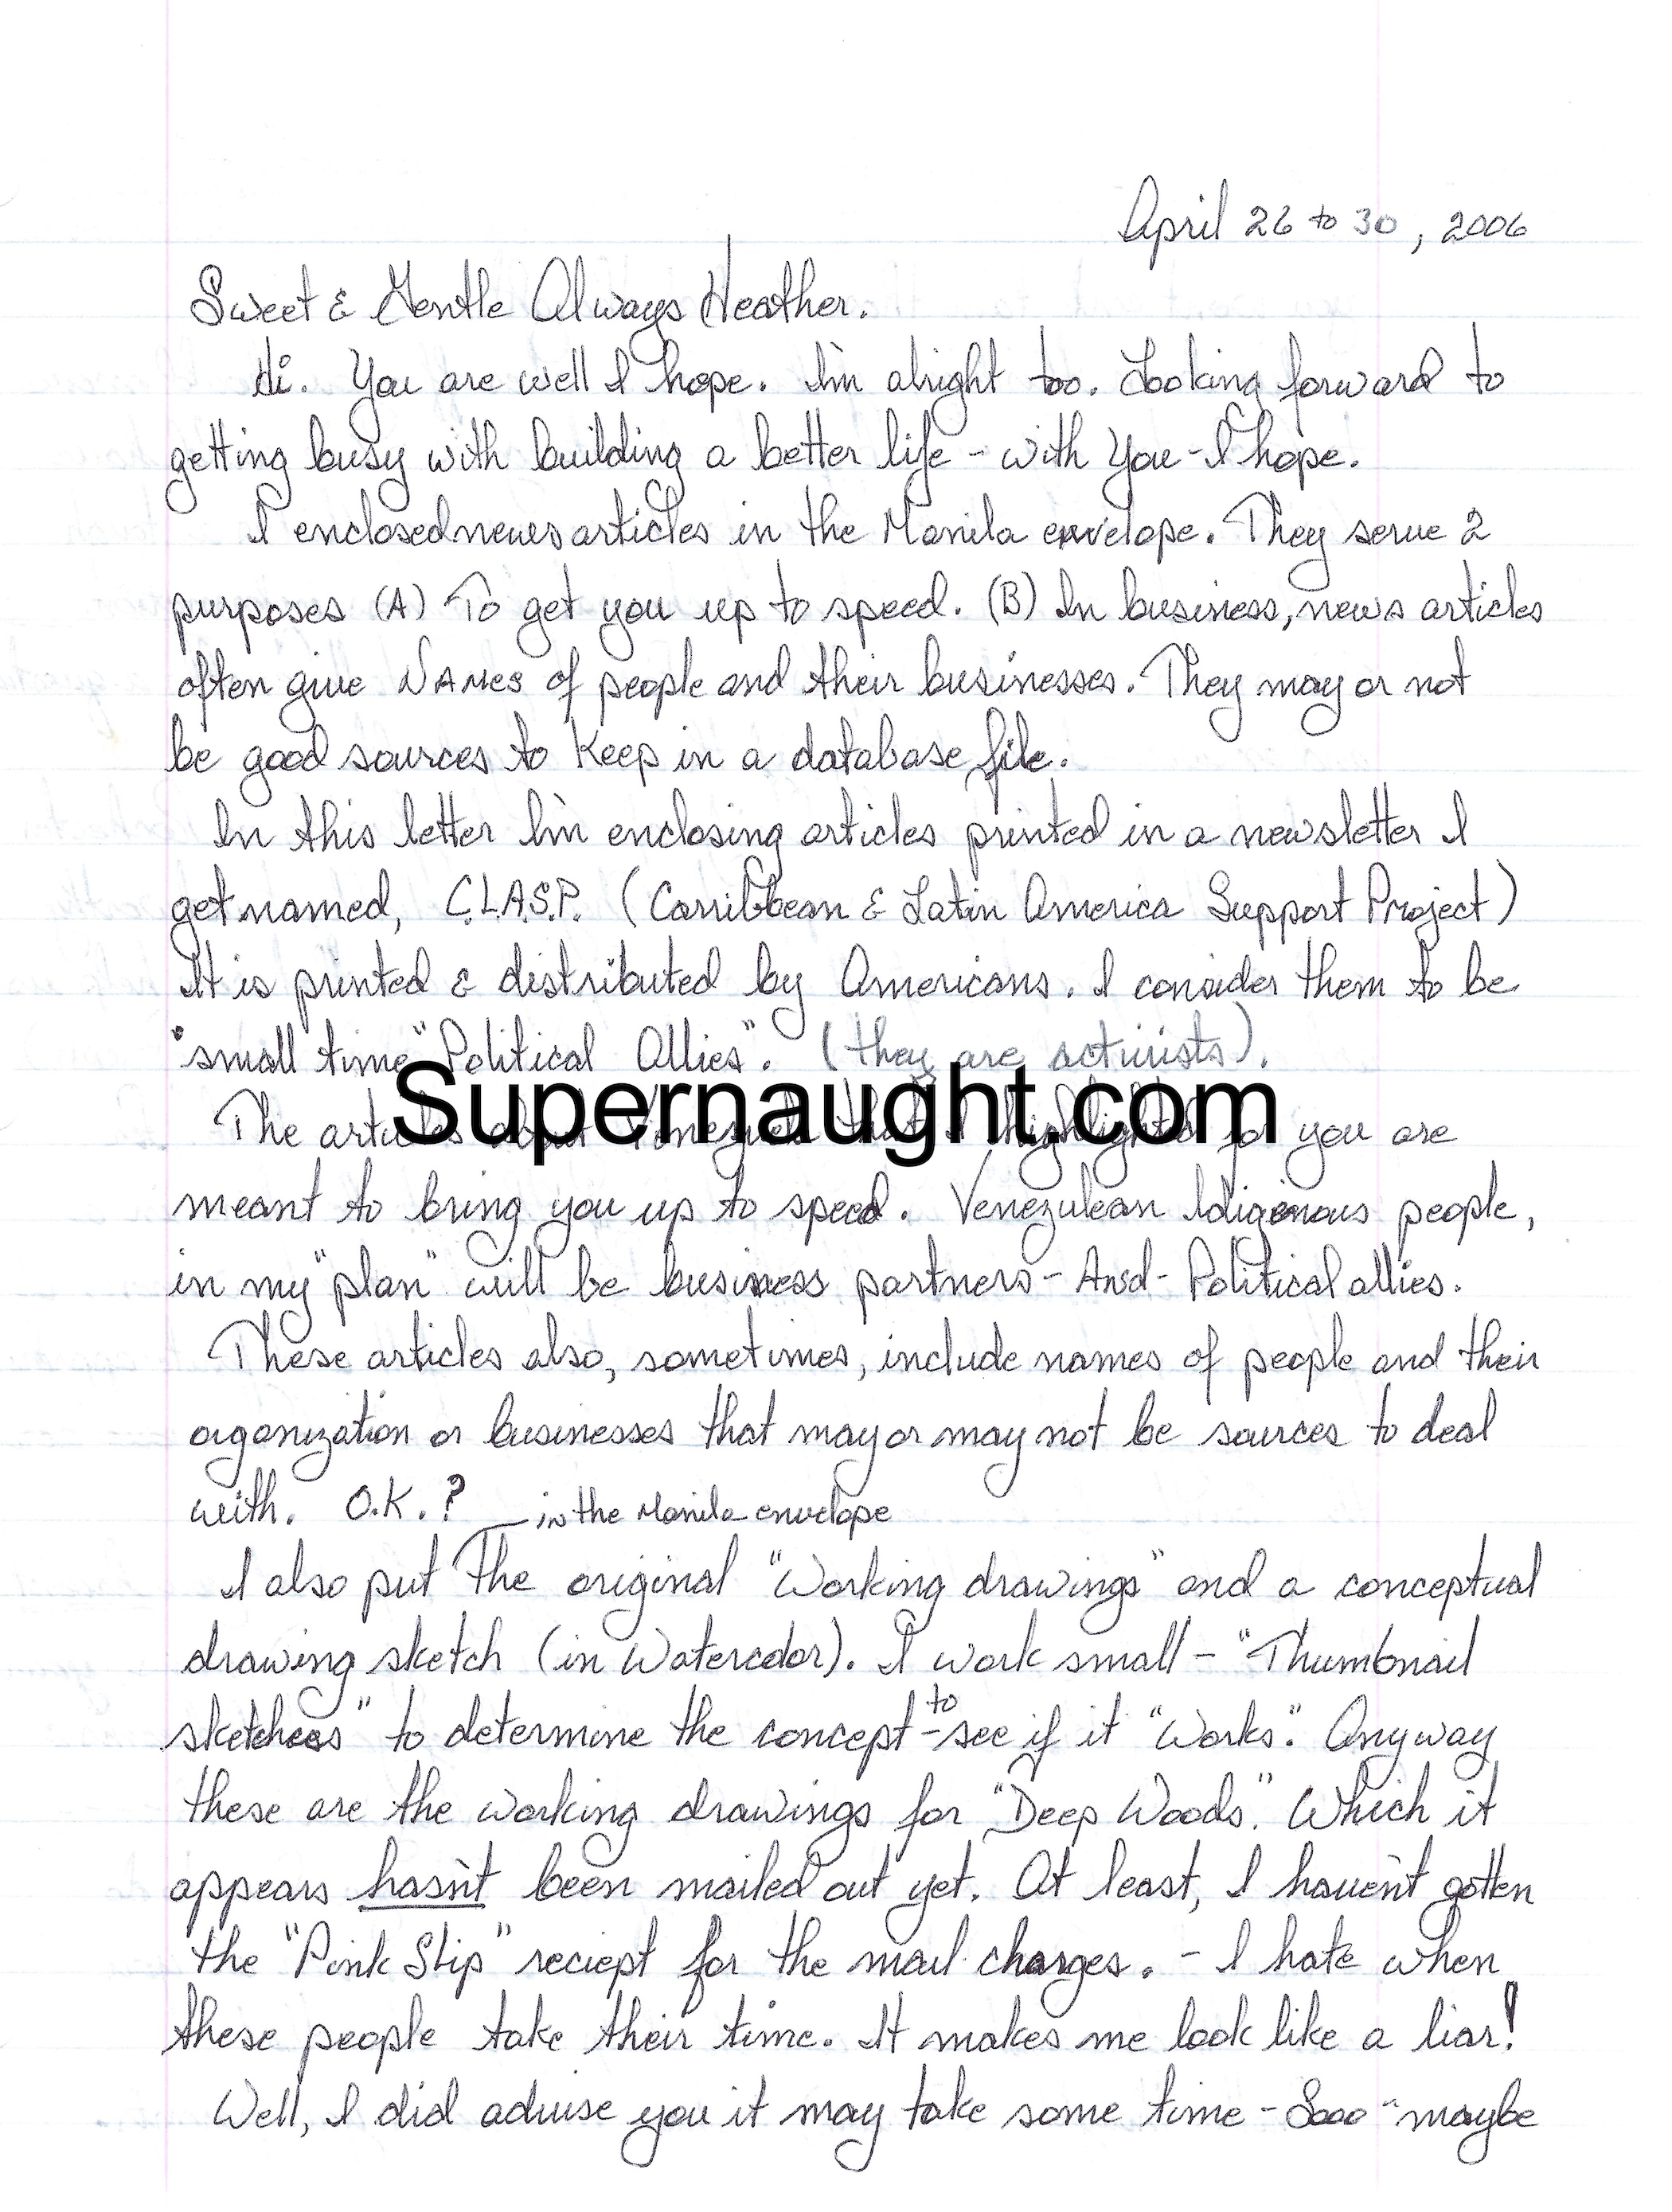 April 26 to 30, 2006
Sweet & Gentle Always Heather.
Hi. You are well I hope. I'm alright too. Looking forward to
getting busy with building a better life - with You - I hope.
I enclosed news articles in the Manila envelope. They serve 2
purposes (A) To get you up to speed. (B) In business, news articles
often give NAMES of people and their businesses. They may or not
be good sources to keep in a database file.
In this letter I'm enclosing articles printed in a newsletter I
get named, C.L.A.S.P. (Carribbean & Latin America Support Project)
It is printed & distributed by Americans. I consider them to be
"small time" "Political Allies". (they are activists).
Supernaught.com
The articles about that I highlighted for you are
meant to bring you up to speed. Venezulean Idigenous people,
in my "plan" will be business partners - And - Political allies.
These articles also, sometimes, include names of people and their
organization or businesses that may or may not be sources to deal
with. O.K.? in the Manila envelope
I also put The original "Working drawings" and a conceptual
drawing sketch (in Watercolor). I work small - "Thumbnail
sketches" to determine the concept - to see if it "Works". Anyway
these are the working drawings for "Deep Woods". Which it
appears hasn't been mailed out yet. At least, I haven't gotten
the "Pink Slip" reciept for the mail charges. - I hate when
these people take their time. It makes me look like a liar!
Well, I did advise you it may take some time - Sooo - maybe